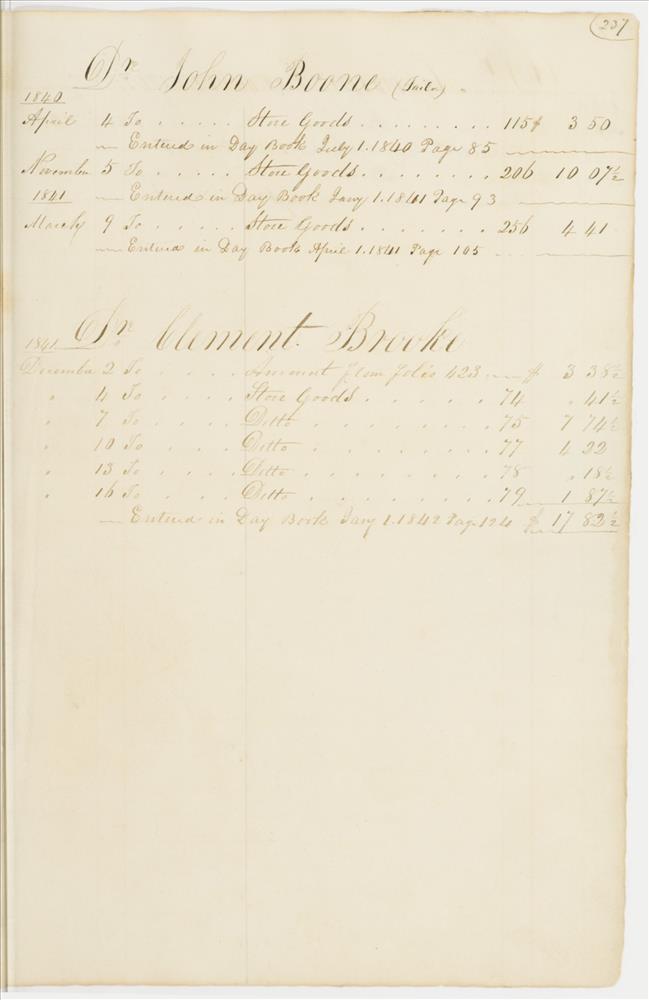 237
Dr. John Boone (Tailor)
1840
April 4 To . . . . . Store Goods . . . . . . . . . 115 $ 3 50
— Entered in Day Book July 1. 1840 Page 85
November 5 To . . . . . Store Goods . . . . . . . . 206 10 07½
1841 — Entered in Day Book Jany 1. 1841 Page 93
March 9 To . . . . . Store Goods . . . . . . . 256 4 41
— Entered in Day Book April 1. 1841 Page 105
1841 Dr. Clement Brooke
December 2 To . . . . Amount from folio 423 $ 3 38½
" 4 To . . . . Store Goods . . . . . . 74 " 41½
" 7 To . . . . Ditto . . . . . . . . . 75 7 74½
" 10 To . . . . Ditto . . . . . . . . . 77 4 22
" 13 To . . . . Ditto . . . . . . . . . 78 " 18½
" 16 To . . . . Ditto . . . . . . . . . 79 1 87½
— Entered in Day Book Jany 1. 1842 Page 124 $ 17 82½